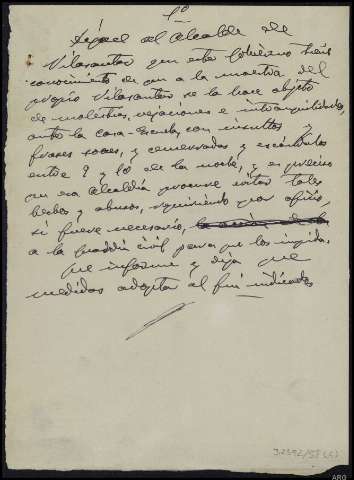 1º
Dígase al Alcalde de
Vilasantar que este Gobierno tiene
conocimiento de que a la maestra del
propio Vilasantar se la hace objeto
de molestias, vejaciones e intranquilidades,
ante la casa-Escuela, con insultos y
frases soeces, y cencerradas y escándalos
entre 9 y 10 de la noche, y es preciso
que esa Alcaldía procure evitar tales
hechos y abusos, requiriendo por oficio,
si fuere necesario,
a la Guardia civil para que los impida.
Que informe y diga que
medidas adopta al fin indicado